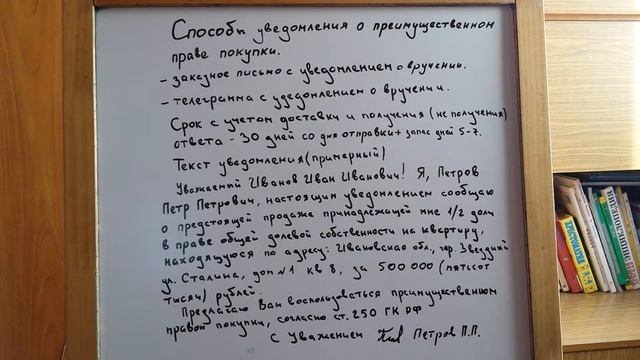 Способы уведомления о преимущественном
праве покупки.
- заказное письмо с уведомлением о вручении.
- телеграмма с уведомлением о вручении.
Срок с учетом доставки и получения (не получения)
ответа - 30 дней со дня отправки + запас дней 5-7.
Текст уведомления (примерный)
Уважаемый Иванов Иван Иванович! Я, Петров
Петр Петрович, настоящим уведомлением сообщаю
о предстоящей продаже принадлежащей мне 1/2 доли
в праве общей долевой собственности на квартиру,
находящуюся по адресу: Ивановская обл., гор. Звездный
ул. Сталина, дом №1 кв 8, за 500 000 (пятьсот
тысяч) рублей.
Предлагаю Вам воспользоваться преимущественном
правом покупки, согласно ст. 250 ГК РФ
С Уважением Петров П.П.